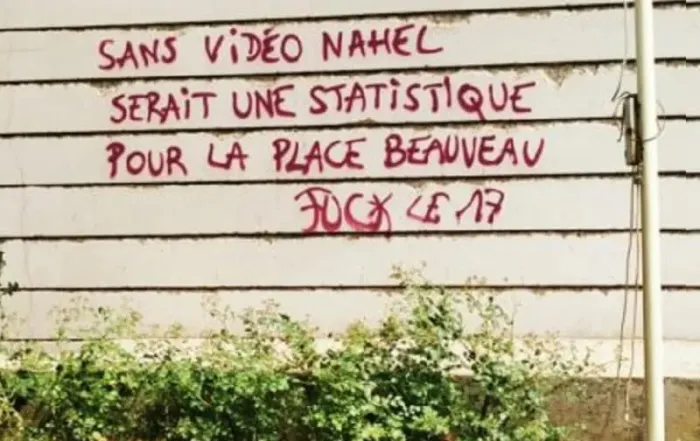 SANS ViDÉO NAHEL
SERAiT UNE STATiSTiQUE
POUR LA PLACE BEAUVEAU
FUCK LE 17